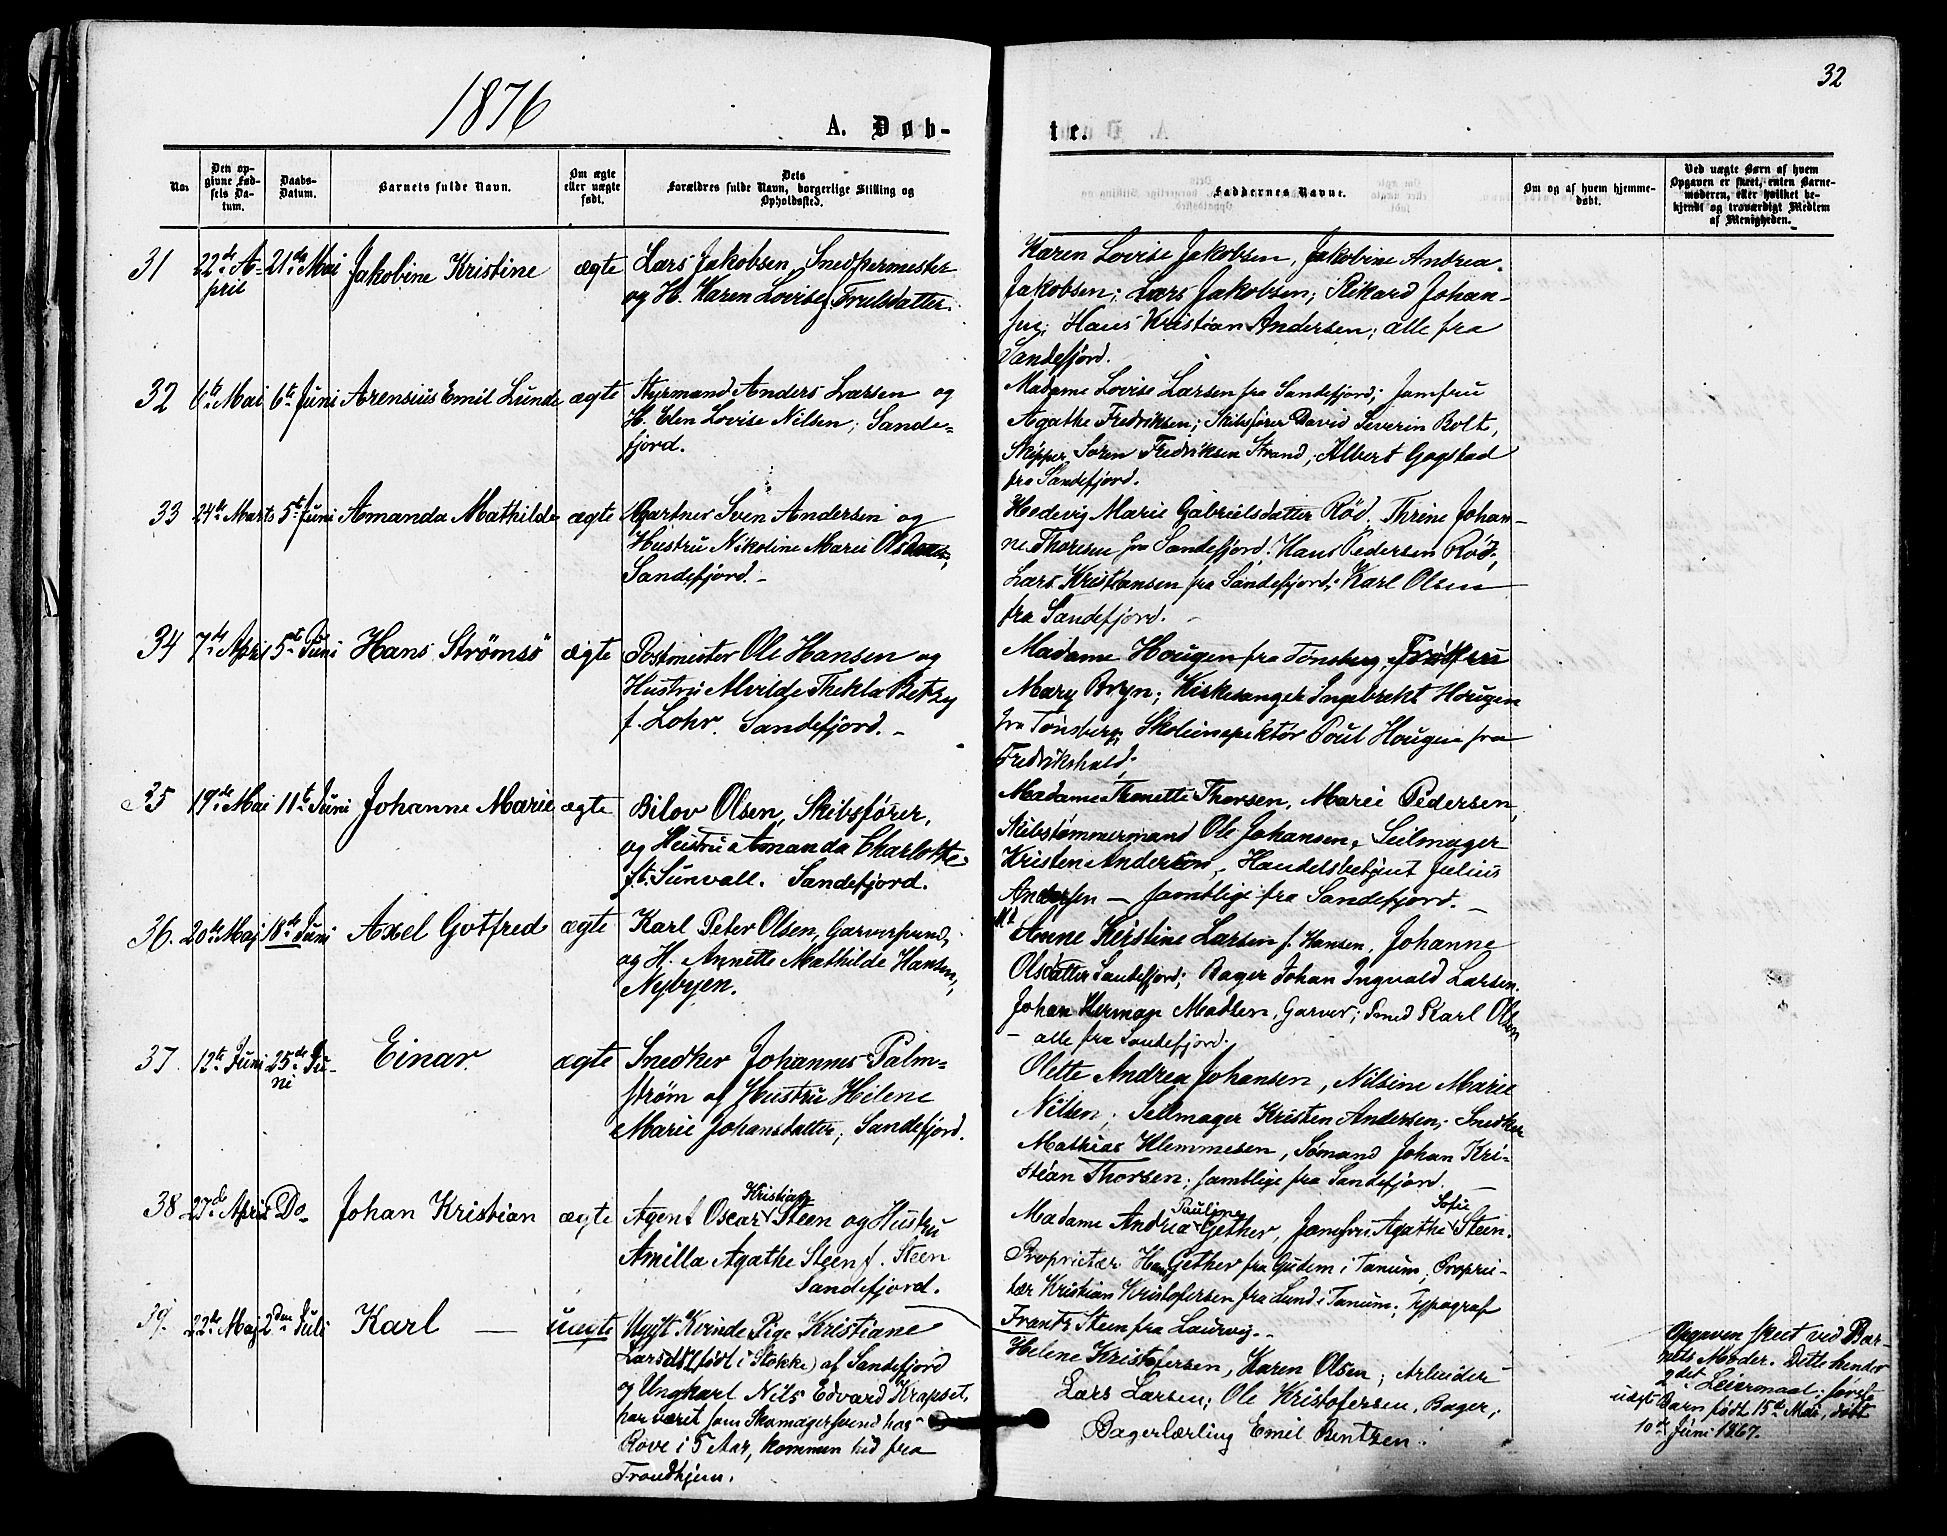 1876
A. Døb-
No.
Den op-
givne Fød-
sels Da-
tum.
Daabs-
Datum.
Barnets fulde Navn.
Om ægte
eller uægte
født.
Dets
Forældres fulde Navn, borgerlige Stilling og
Opholdssted.
31 22de A- 21de Mai Jakobine Kristine ægte Lars Jakobsen, Snedkermester
pril og H. Karen Lovise Trulsdatter.
32 6te Mai 6te Juni Arensius Emil Lunde ægte Styrmand Anders Larsen og
H. Elen Lovise Nilsen; Sande-
fjord.
33 24de Marts 5te Juni Amanda Mathilde ægte Gartner Sven Andersen og
Hustru Nikoline Marie
Sandefjord.
34 7de April 5te Juni Hans Strømsö ægte Postmester Ole Hansen og
Hustru Alvilde Thekla Betzy
f. Lohr. Sandefjord.
35 19de Mai 11te Juni Johanne Marie ægte Bilov Olsen, Skibsfører,
og Hustru Amanda Charlotte
f. Sunvall. Sandefjord.
36. 20de Maj 18de Juni Axel Gotfred ægte Karl Peter Olsen, Garversvend,
og H. Annette Mathilde Hansen,
Nybyen.
37. 12te Juni 25de Ju- Einar. ægte Snedker Johannes Palm-
ni strøm og Hustru Helene
Marie Johansdatter; Sandefjord.
38 27de April Do- Johan Kristian ægte Agent Oscar Kristian Steen og Hustru
Amilla Agathe Steen f. Steen
Sandefjord.
39. 22de Maj 2den Juli Karl — uægte Ugift Kvinde Pige Kristiane
Larsdt (født i Stokke) af Sandefjord
og Ungkarl Nils Edvard Krapset,
har været som Skomagersvend hos
Rove i 5 Aar, kommen hid fra
Trondhjem.
32
te.
Faddernes Navne.
Om og af hvem hjemme-
døbt.
Ved uægte Børn af hvem
Opgaven er skeet, enten Barne-
moderen, eller hvilket be-
kjendt og troværdigt Medlem
af Menigheden.
Karen Lovise Jakobsen, Jakobine Andrea
Jakobsen; Lars Jakobsen; Rikard Johan-
sen; Hans Kristian Andersen; alle fra
Sandefjord.
Madame Lovise Larsen fra Sandefjord; Jomfru
Agathe Fredriksen; Skibsfører David Severin Bolt,
Skipper Soren Fredriksen Strand; Albert Gogstad
fra Sandefjord.
Hedevig Marie Gabrielsdatter Rød. Thrine Johan-
ne Thoresen fra Sandefjord. Hans Pedersen Rød,
Lars Kristiansen fra Sandefjord; Karl Olsen
fra Sandefjord.
Madame Hougen fra Tønsberg, Frøken
Mary Bryn; Kirkesanger Ingebrekt Hougen
fra Tønsberg; Skoleinspektør Poul Hougen fra
Fredrikshald.
Madame Thonette Thorsen, Marie Pedersen,
Skibstømmermand Ole Johansen, Seilmager
Kristen Andersen, Handelsbetjent Julius
Andersen — samtlige fra Sandefjord.
Anne Kirstine Larsen f. Hansen, Johanne
Olsdatter Sandefjord; Bager Johan Ingvald Larsen.
Johan Herman Madsen, Garver; Smed Karl Olsen
— alle fra Sandefjord.
Olette Andrea Johansen, Nilsine Marie
Nilsen; Seilmager Kristen Andersen; Snedker
Mathias Klemmesen, Sømand Johan Kri-
stian Thorsen; samtlige fra Sandefjord.
Madame Andrea Pauline Gether, Jomfru Agathe Sofie Steen.
Proprietær Hans Gether fra Gudem i Tanum, Proprie-
tær Kristian Kristofersen fra Lund i Tanum; Typograf
Frantz Steen fra Laurvig.
Helene Kristofersen, Karen Olsen; Arbeider
Lars Larsen; Ole Kristofersen, Bager;
Bagerlærling Emil Bentzen.
Opgaven skeet ved Bar-
nets Moder. Dette hendes
2det Leiermaal; første
uægt. Barn født 15de Mai, døbt
10de Juni 1867.